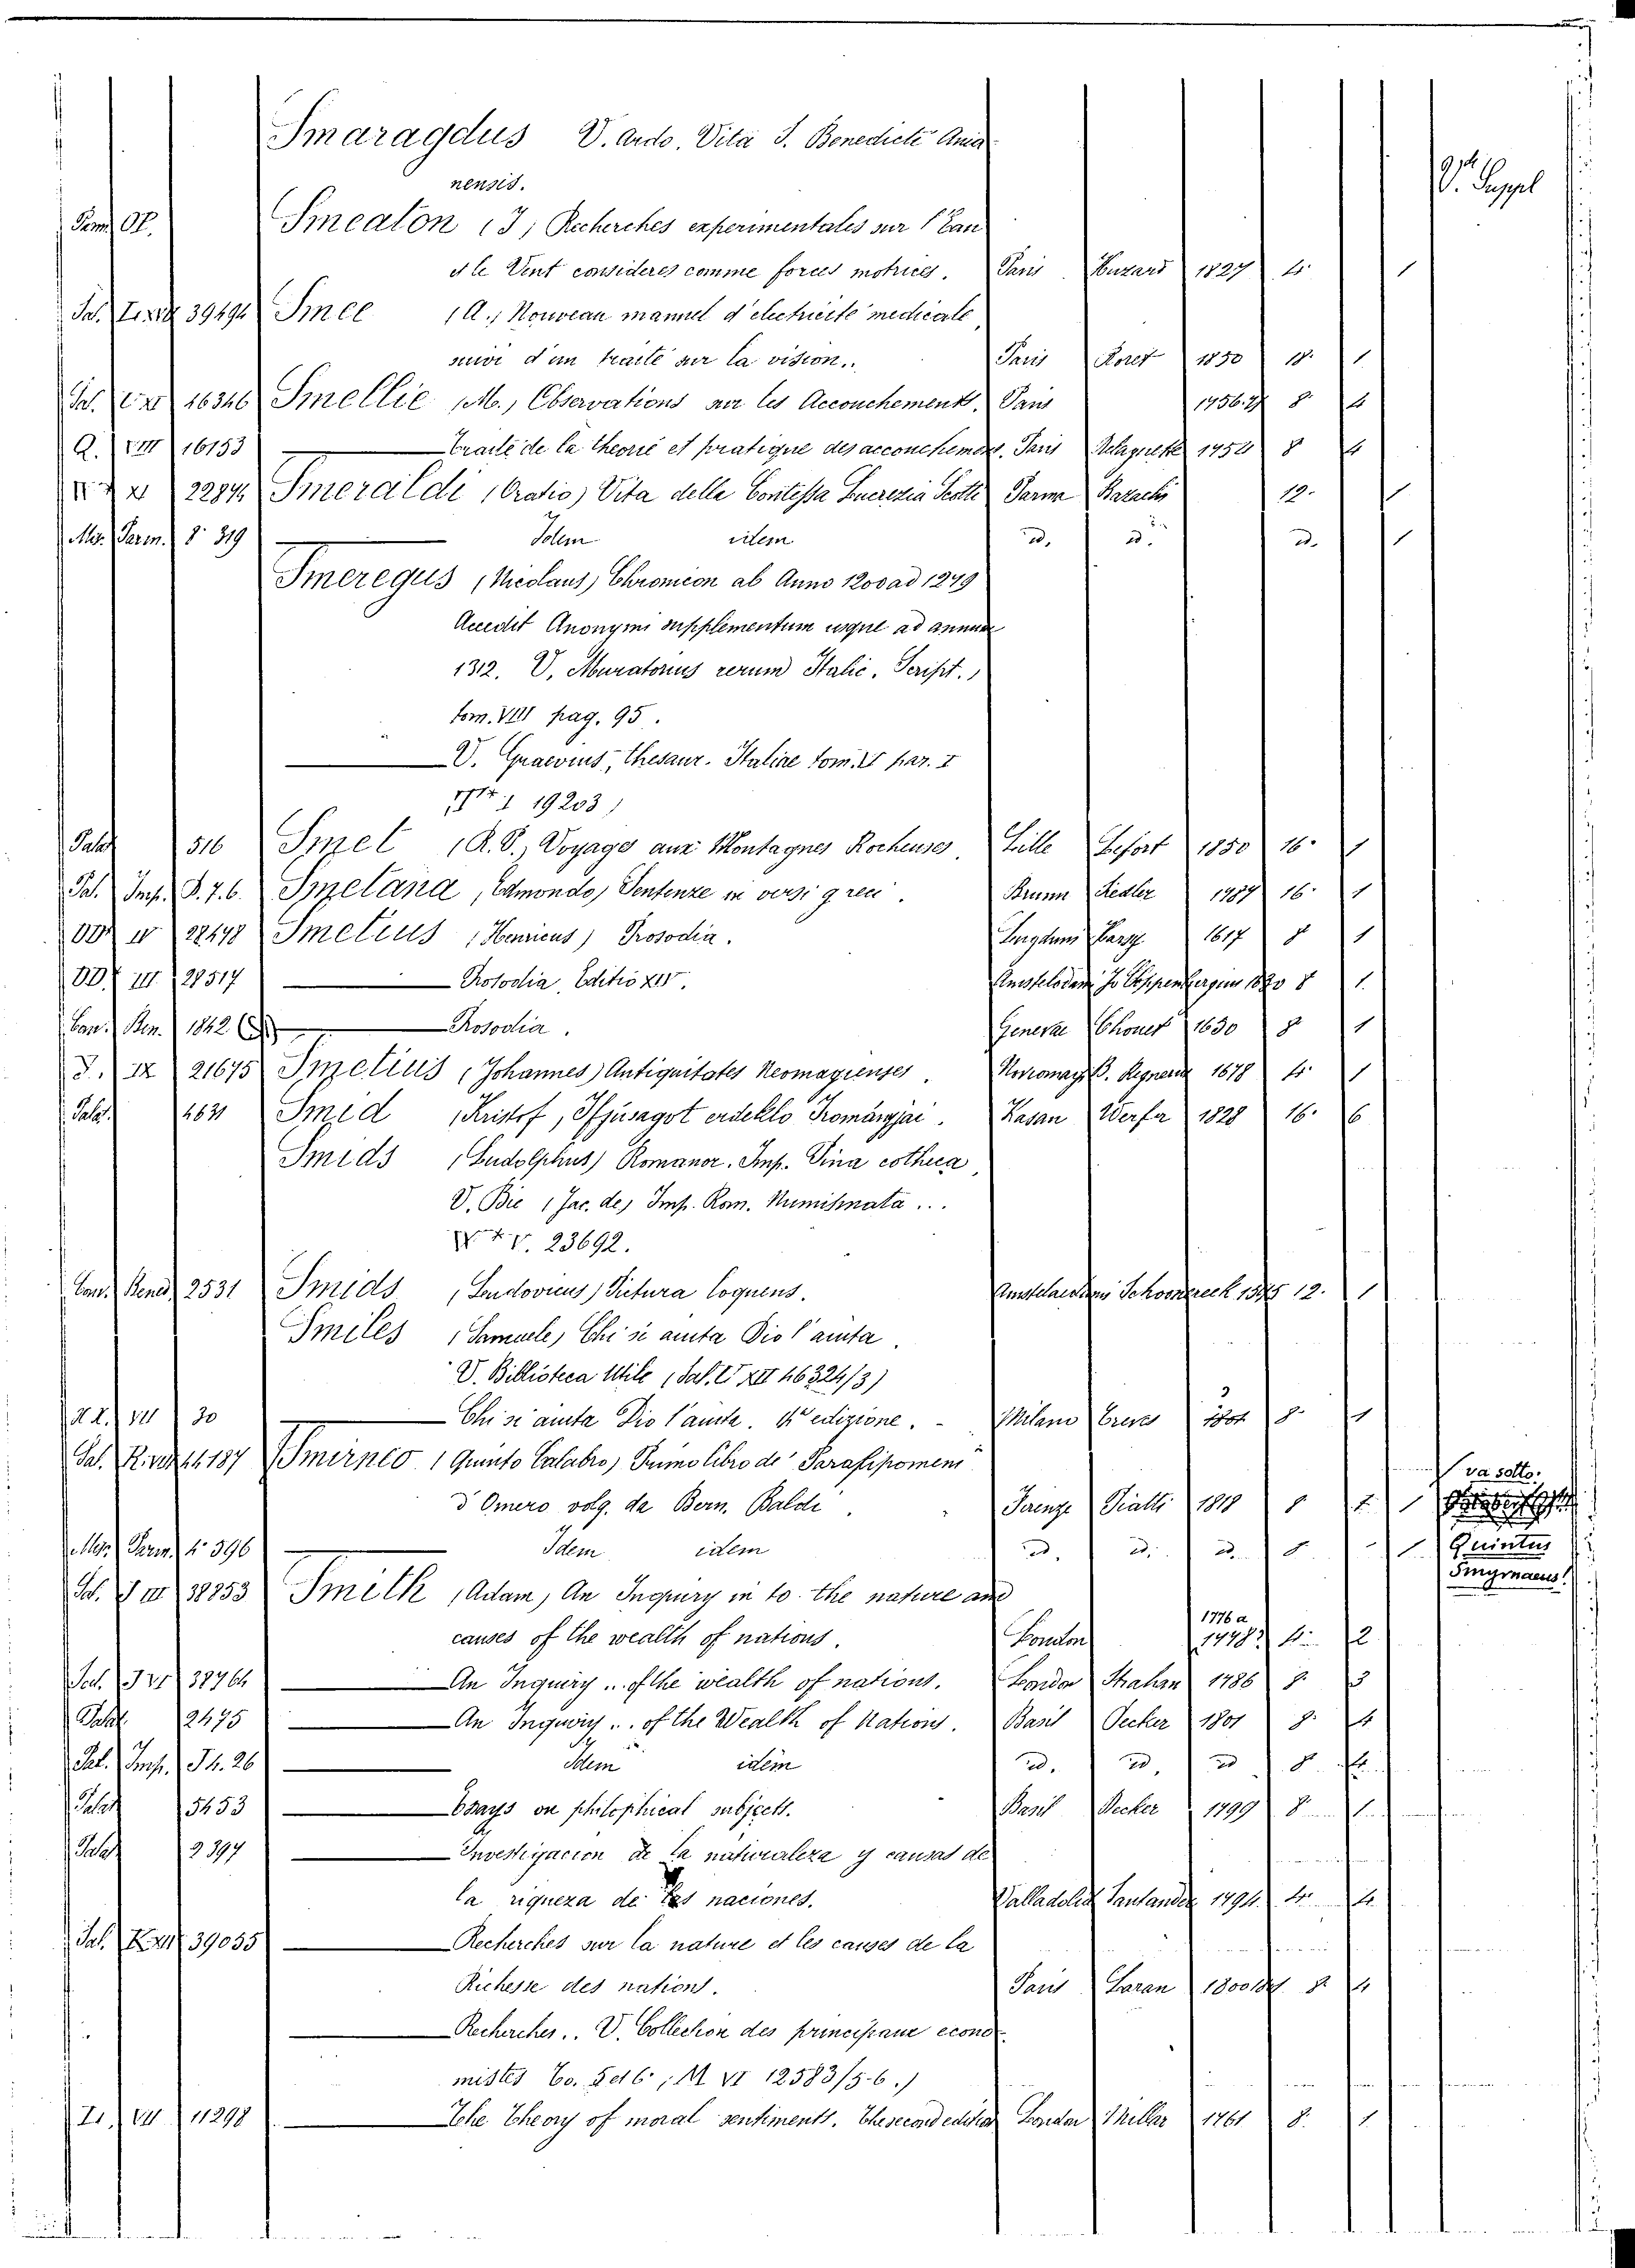 Smaragdus V. Ardo. Vita S. Benedicti Ania
nensis.
V. Suppl
Smeaton (J) Recherches experimentales sur l'Eau
et le Vent consideres comme forces motrices. Paris Huzard 1827 4. 1
39494 Smee (A.) Nouveau manuel d'electricité medicale
suivi d'un traité sur la vision.. Paris Roret 1850 18. 1
46346 Smellie (M.) Observations sur les Accouchements. Paris 8
Q. VIII 16153 Traité de la theorie et pratique des accouchemens. Paris 1754 8 4
22874 Smeraldi (Oratio) Vita della Contessa Lucrezia Scotti Parma 12. 1
Mss. Parm. 8° 319 Idem idem id. id. id. 1
Smeregus (Nicolaus) Chronicon ab Anno 1200 ad 1279
Accedit Anonymi supplementum usque ad annum
1312. V. Muratorius rerum Italic. Script.
tom. VIII pag. 95.
V. Graevius, thesaur. Italiae tom. par. I
19203)
Palat 516 Smet (R. P.) Voyages aux Montagnes Rocheuses Lille Lefort 1850 16. 1
Pal. Imp. P. 7. 6. Smetana (Edmondo) Sentenze in versi greci. Brunn Siedler 16. 1
28478 Smetius (Henricus) Prosodia. 1617 8 1
DD. III. 28517 Prosodia Editio XIV. 8 1.
Can. Ben. 1842 Prosodia. Genevae Chouet 1630 8 1
IX 21675 Smetius (Johannes) Antiquitates Neomagienses. 1678 4. 1
Palat. 4631 Smid (Kristof) Ifjúságot erdeklo Románjai. Kasan Werfer 1828 16. 6
Smids (Ludolphus) Romanor. Imp. Pinacotheca
V. Bie (Jac. de) Imp. Rom. Numismata ...
V. 23692.
Can. Bened. 2531 Smids (Ludovicus) Pictura loquens. 12. 1
Smiles (Samuele) Chi si aiuta Dio l'aiuta.
V. Biblioteca Utile (Sal. XII 46324/3)
VII 30 Chi si aiuta Dio l'aiuta. edizione. - Milano Treves 8. 1
Smirneo (Quinto Calabro) Primo libro de' Paralipomeni
va sotto:
d'Omero volg. da Bern. Baldi. Firenze Piatti 1818 8
Mss. Parm. 4° 396 Idem idem id. id. id. 8 1
Quintus
Smyrnaeus!
38853 Smith (Adam) An Inquiry in to the nature and
1776 a
causes of the wealth of nations. London 4. 2
38764 An Inquiry .. of the wealth of nations. London Strahan 1786 8. 3
Palat. 2475 An Inquiry .. of the Wealth of Nations. Basil Decker 1801 8. 4
Pal. Imp. Th. 26 Idem idem id. id. id 8. 4.
Palat 5453 Essays on philophical subjects. Basil Decker 1799 8 1.
Palat 2397 Investigacion de la naturaleza y causas de
la riqueza de las naciones. Valladolid Santander 1794. 4. 4.
Sal. 39055 Recherches sur la nature et les causes de la
Richesse des nations. Paris Laran 8. 4
Recherches.. V. Collection des principaux econo
mistes To. 5 et 6 (M VI 12583/5-6.)
VII 11298 The Theory of moral sentiments. The second edition London Millar 1761 8. 1